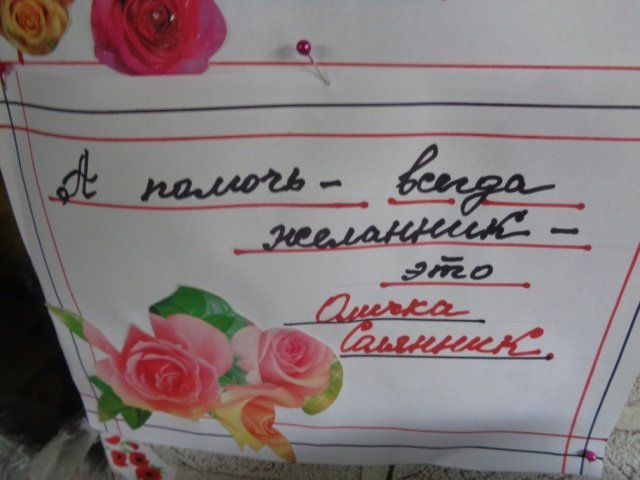 А помочь - всегда
желанник -
это
Оличка
Салянник.